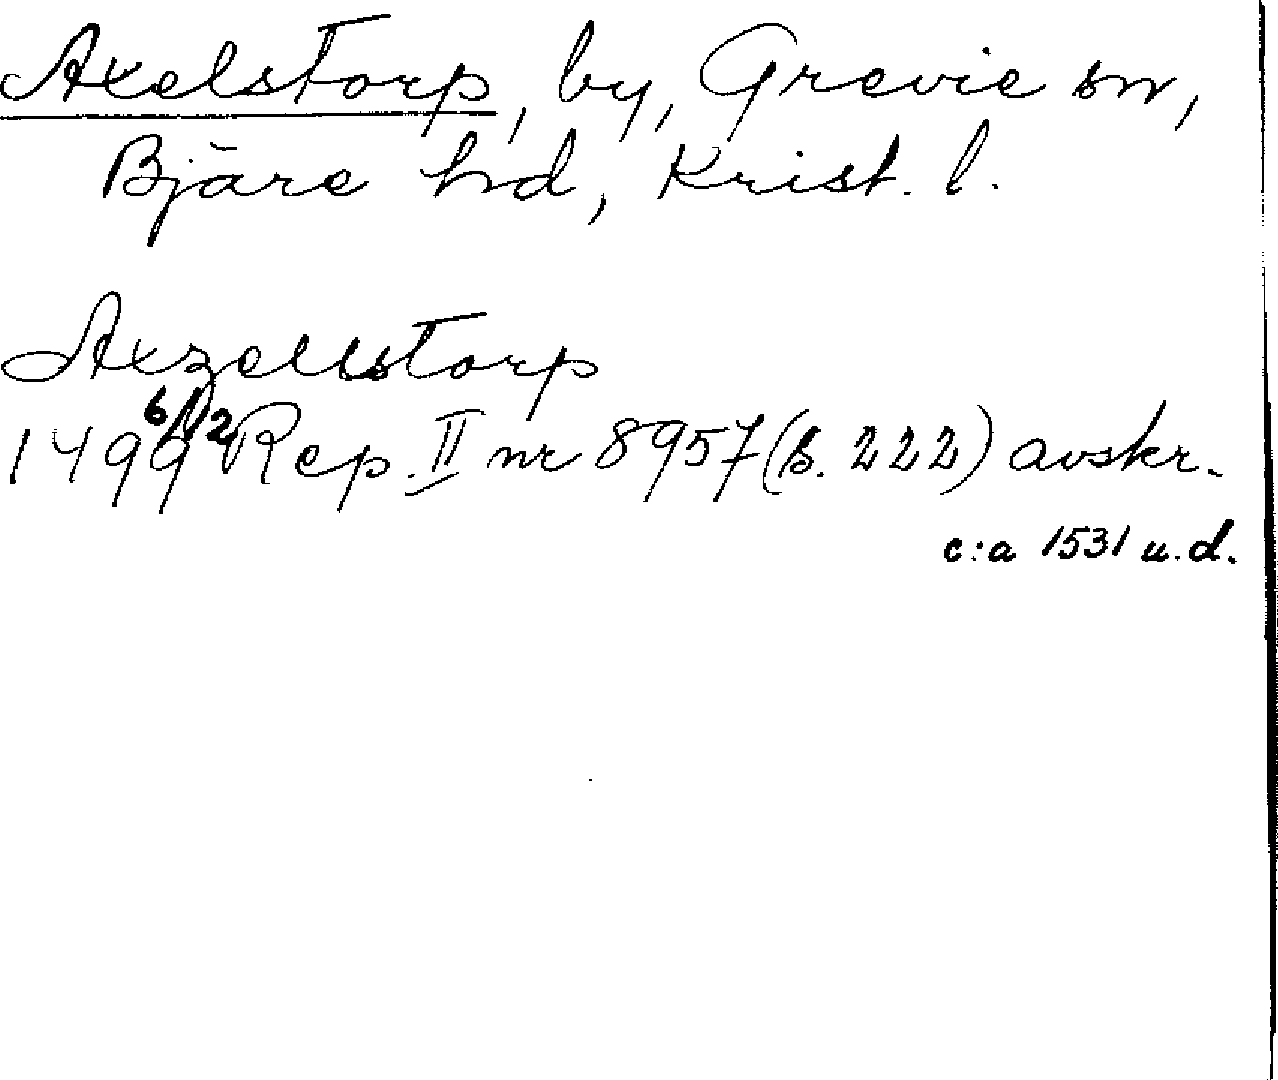 Axelstorp, by, Grevie sn,
Bjäre hd, Krist. l.
Axzellstorp
1499 6/12 Rep. II nr 8957 (s. 222) avskr.
c:a 1531 u.d.